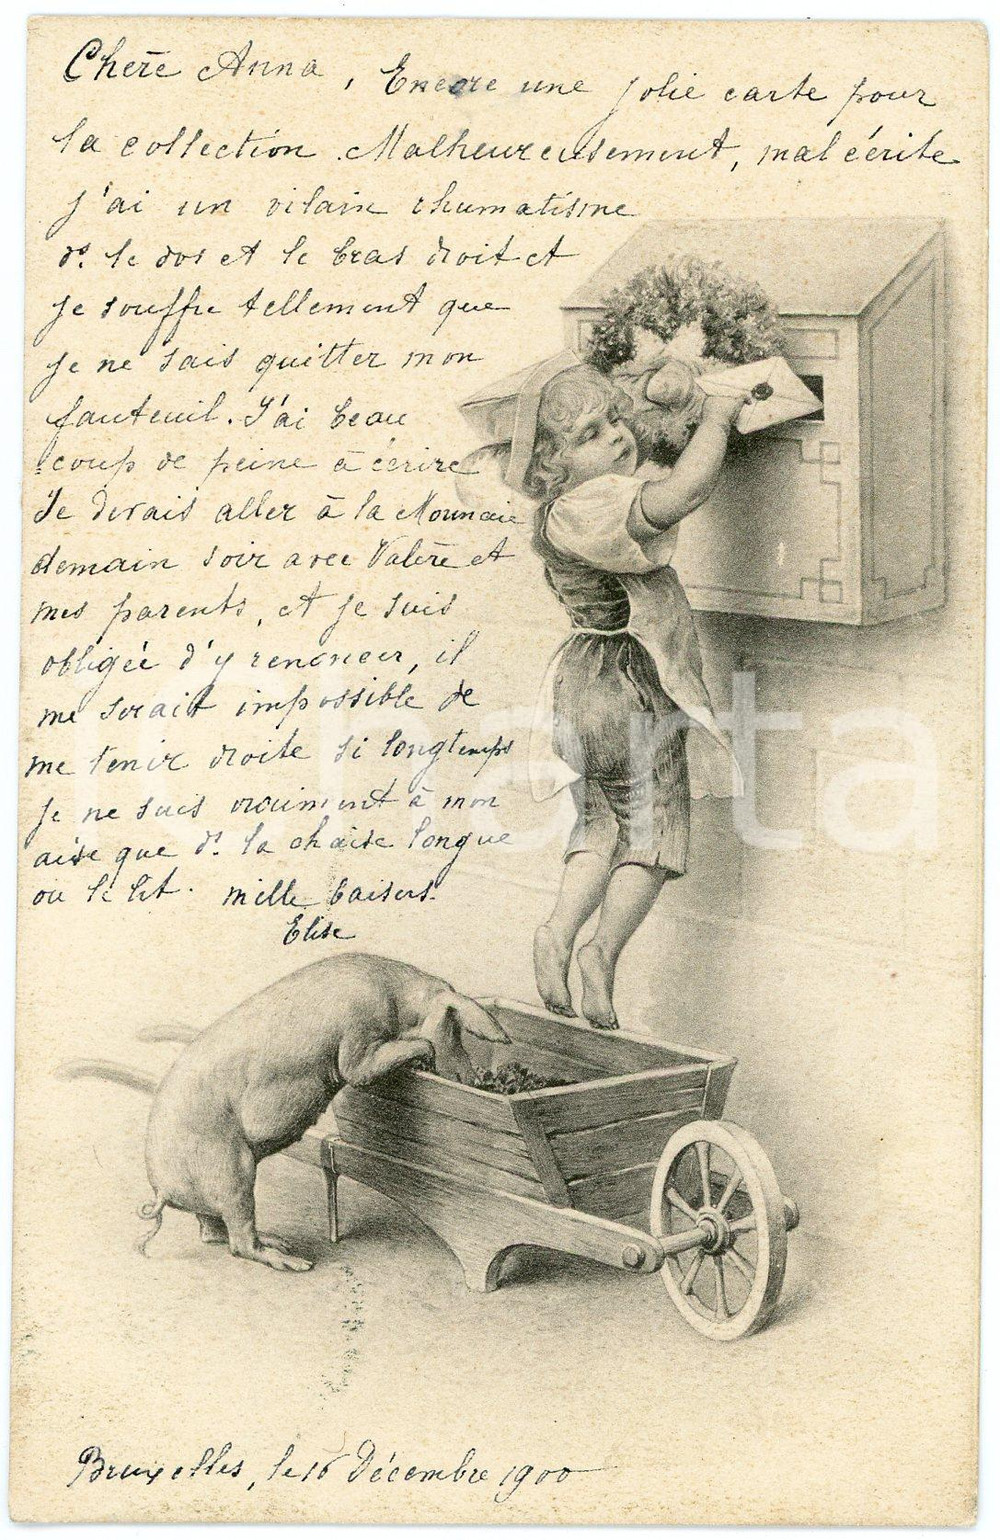 Chère Anna, Encore une jolie carte pour
la collection. Malheureusement, mal écrite
j'ai un vilain rhumatisme
ds. le dos et le bras droit et
je souffre tellement que
je ne sais quitter mon
fauteuil. J'ai beau
coup de peine à écrire
Je devais aller à la Monnaie
demain soir avec Valère et
mes parents, et je suis
obligée d'y renoncer, il
me serait impossible de
me tenir droite si longtemps
je ne suis vraiment à mon
aise que ds. la chaise longue
ou le lit. mille baisers.
Elise
Bruxelles, le 16 Décembre 1900